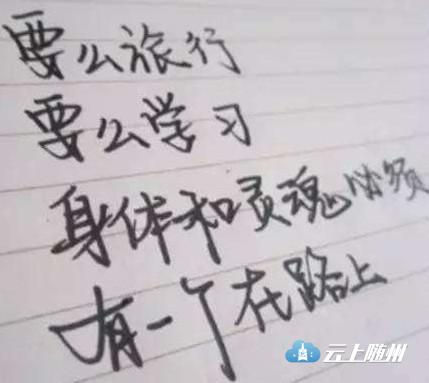 要么旅行
要么学习
身体和灵魂必须
有一个在路上
云上随州